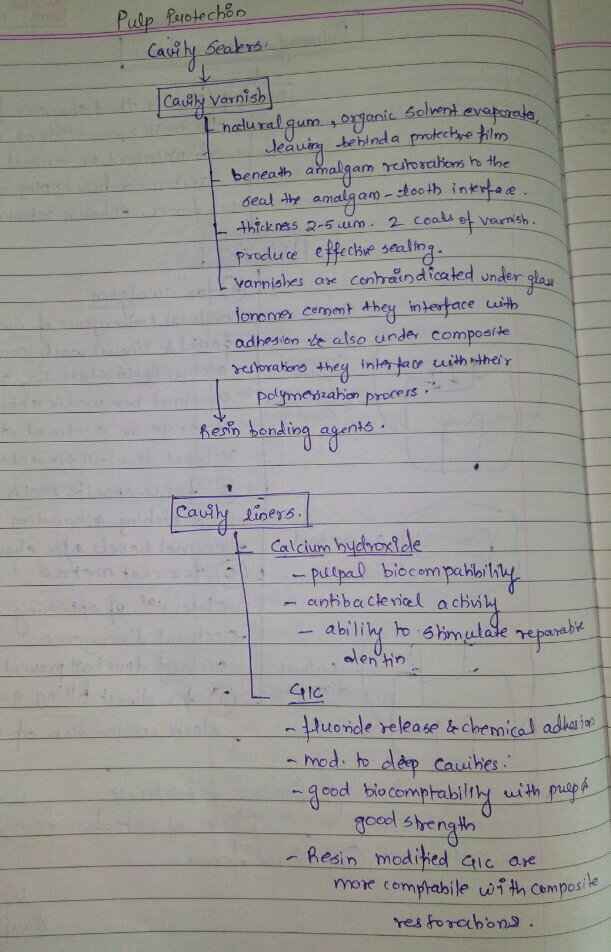 Pulp Protection
Cavity Sealers.
Cavity varnish
natural gum, organic solvent evaporates,
leaving behind a protective film
beneath amalgam restorations to the
seal the amalgam-tooth interface.
thickness 2-5 um. 2 coats of varnish.
produce effective sealing.
varnishes are contraindicated under glass
ionomer cement they interface with
adhesion & also under composite
restorations they interface with their
polymerization process.
Resin bonding agents.
Cavity liners.
Calcium hydroxide
- pulpal biocompatibility
- antibacterial activity
- ability to stimulate reparative
dentin
GIC
- fluoride release & chemical adhesion
- mod. to deep cavities.
- good biocomptability with pulp &
good strength
- Resin modified GIC are
more comptabile with composite
restorations.